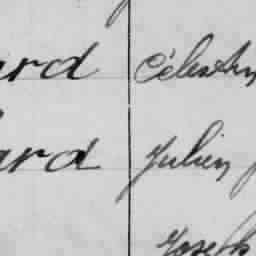 ard Célestin
ard Julien
Joseph